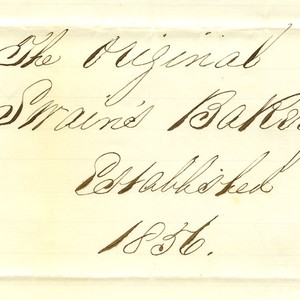 The Original
Swain's Bake
Established
1856.